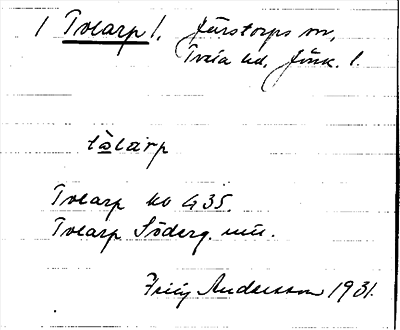 / Tvearp /. Järstorps sn,
Tveta hd, Jönk. l.
tåtarp
Tvearp ko G 35.
Tvearp Söderg. min.
Andersson 1931.